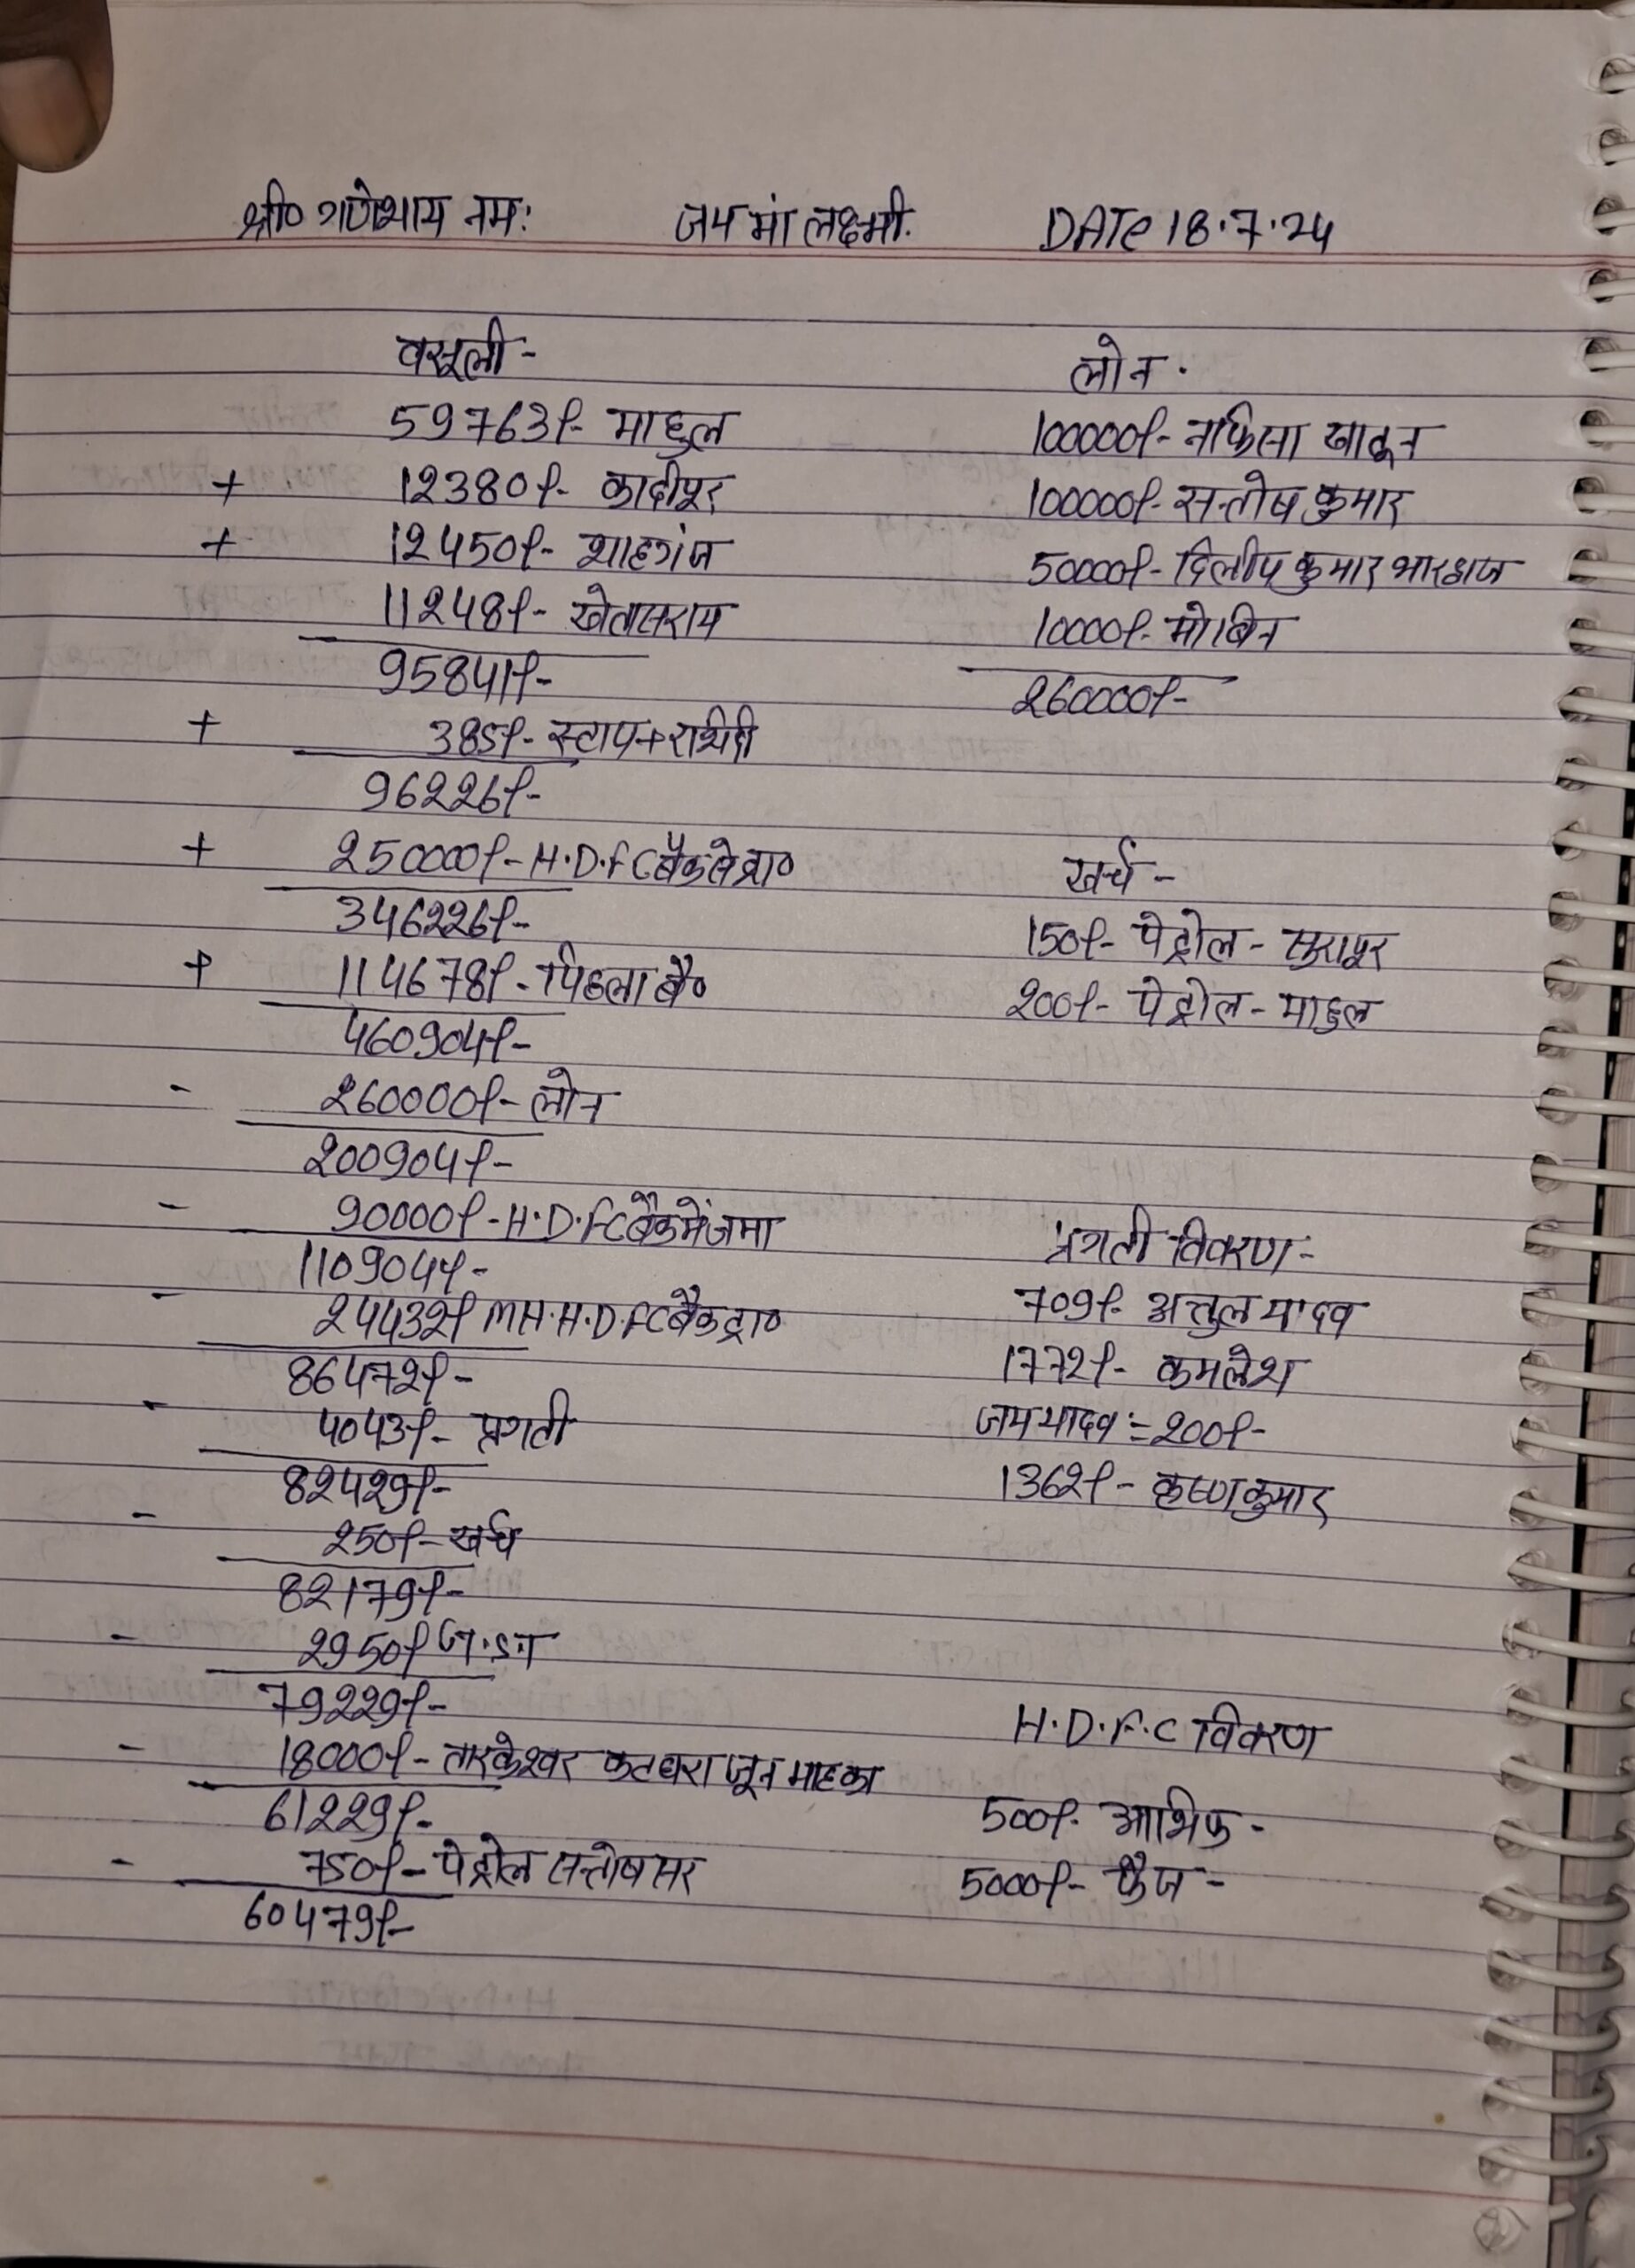 श्री० गणेशाय नमः जय मां लक्ष्मी. DATe 18.7.24
वसूली-
59763/- माहुल
+ 12380/- कादीपुर
+ 12450/- शाहगंज
11248/- खेतासराय
95841/-
+ 385/- स्टाप+राशिदी
96226/-
+ 250000/- H.D.FC बैंक से प्रा०
346226/-
+ 114678/- पिछला बै०
460904/-
- 260000/- लोन
200904/-
- 90000/- H.D.FC बैंक में जमा
110904/-
- 24432/- MH.H.D.FC बैंक द्रा०
86472/-
- 4043/- प्रगती
82429/-
- 250/- खर्च
82179/-
- 2950/- G.S.T
79229/-
- 18000/- तारकेश्वर कटघरा जून माह का
61229/-
- 750/- पेट्रोल सन्तोष सर
60479/-
लोन.
100000/- नफिसा खातून
100000/- सन्तोष कुमार
50000/- दिलीप कुमार भारद्वाज
10000/- मोबिन
260000/-
खर्च-
150/- पेट्रोल - सुरापुर
200/- पेट्रोल - माहुल
प्रगती विवरण-
709/- अतुल यादव
1772/- कमलेश
जय यादव := 200/-
1362/- कृष्ण कुमार
H.D.F.C विवरण
500/- आशिफ -
5000/- फैज -